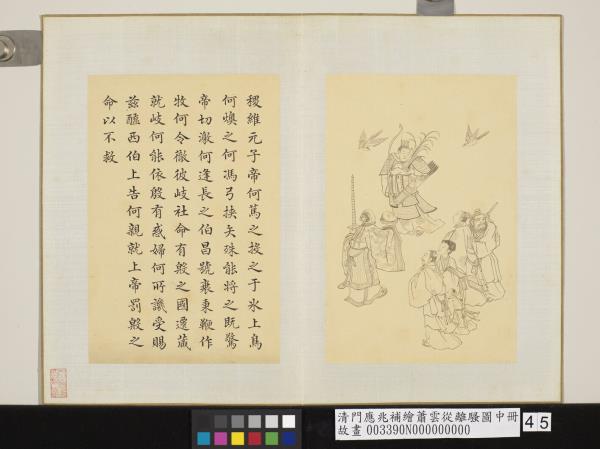 稷維元子帝何篤之投之于氷上鳥
何燠之何馮弓挾矢殊能將之既驚
帝切激何逢長之伯昌號衰秉鞭作
牧何令徹彼岐社命有殷之國遷藏
就岐何能依殷有惑婦何所譏受賜
茲醢西伯上告何親就上帝罰殷之
命以不救
清門應兆補繪蕭雲從離騷圖中冊
故畫 003390N000000000
45